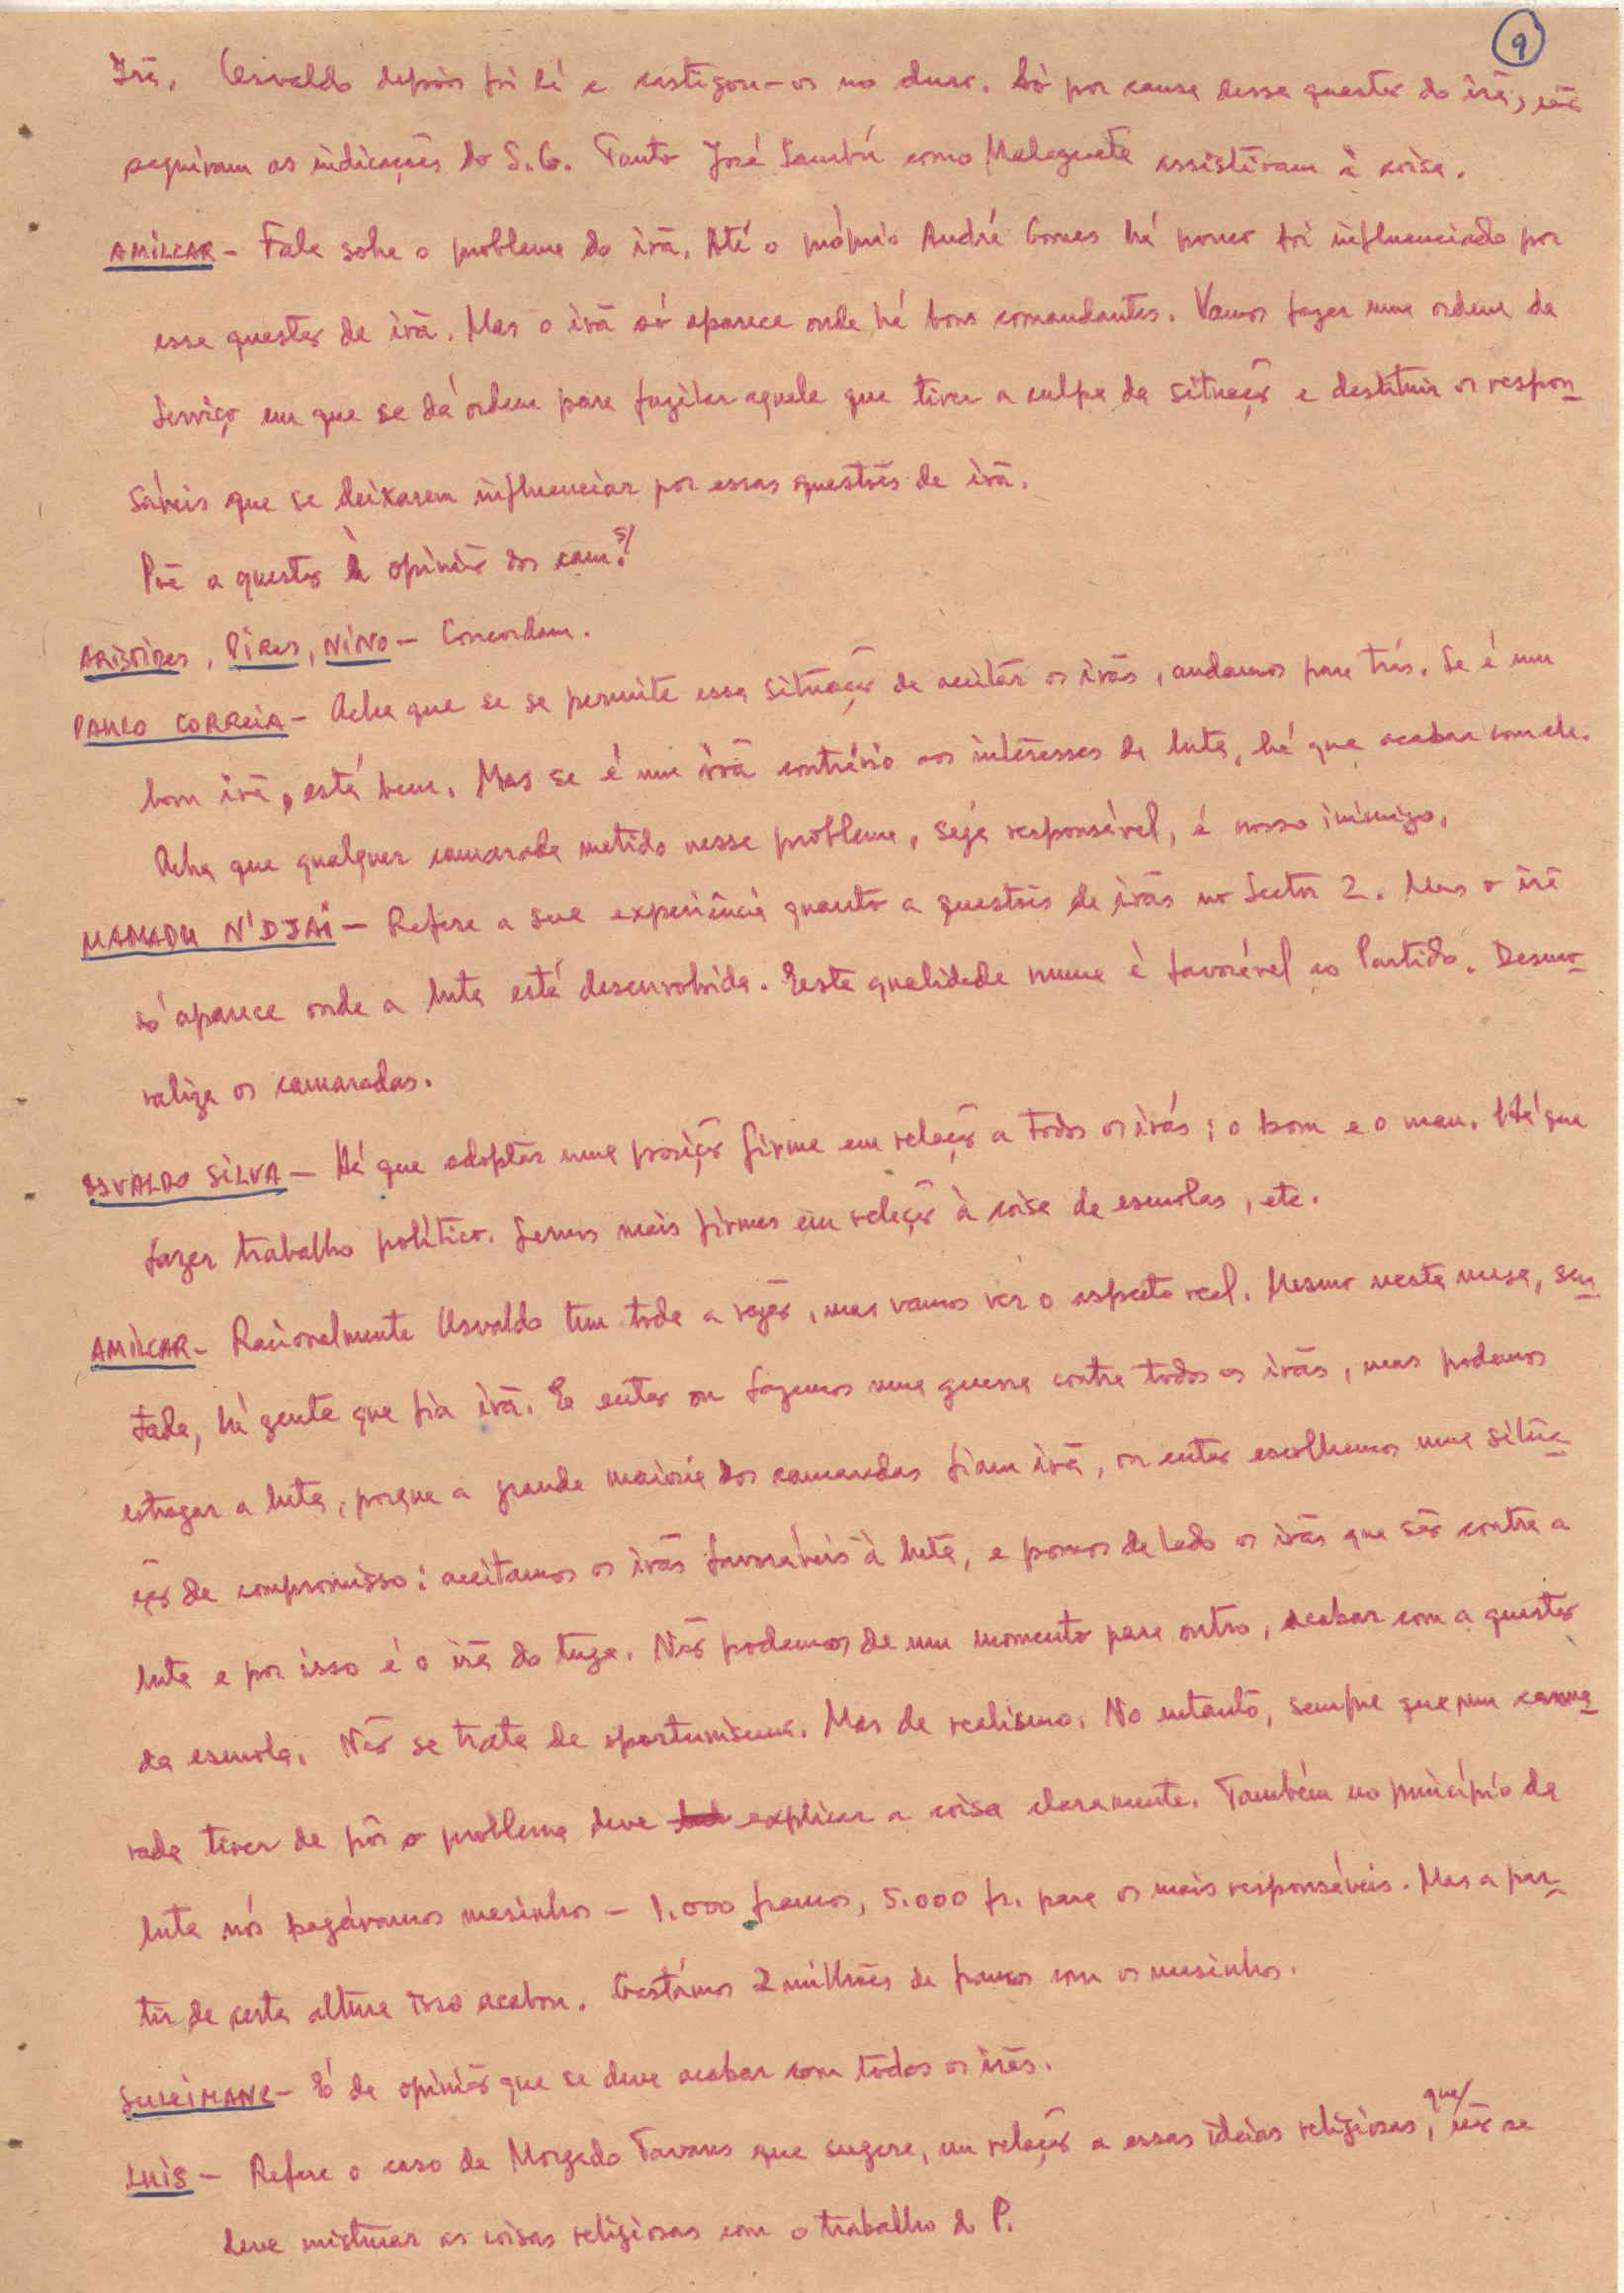 9
Irã. Osvaldo depois foi lá e castigou-os no duro. Só por causa dessa questão do irã, não
seguiram as indicações do S.G. Tanto José Sambú como Malagueta assistiram à coisa.
AMILCAR - Fala sobre o problema do irã. Até o próprio André Gomes há pouco foi influenciado por
essa questão de irã. Mas o irã só aparece onde há bons comandantes. Vamos fazer uma ordem de
Serviço em que se dá ordem para fuzilar aquele que tiver a culpa da situação e destituir os respon-
sáveis que se deixarem influenciar por essas questões de irã.
Põe a questão à opinião dos cam.s/
ARISTIDES, PIRES, NINO - Concordam.
PAULO CORREIA - Acha que se se permite essa situação de aceitar os irãs, andamos para trás. Se é um
bom irã, está bem. Mas se é um irã contrário aos interesses da luta, há que acabar com ele.
Acha que qualquer camarada metido nesse problema, seja responsável, é nosso inimigo.
MAMADU N'DJAI - Refere a sua experiência quanto a questões de irãs no Sector 2. Mas o irã
só aparece onde a luta está desenvolvida. Esta qualidade nunca é favorável ao Partido. Desmo-
raliza os camaradas.
OSVALDO SILVA - Há que adoptar uma posição firme em relação a todos os irãs: o bom e o mau. Há que
fazer trabalho político. Sermos mais firmes em relação à coisa de esmolas, etc.
AMILCAR - Racionalmente Osvaldo tem toda a razão, mas vamos ver o aspecto real. Mesmo nesta mesa, sen-
tada, há gente que fia irã. E então ou fazemos uma guerra contra todos os irãs, mas podemos
estragar a luta, porque a grande maioria dos camaradas fiam irã, ou então escolhemos uma situa-
ção de compromisso: aceitamos os irãs favoráveis à luta, e pomos de lado os irãs que são contra a
luta e por isso é o irã do tuga. Não podemos de um momento para outro, acabar com a questão
da esmola. Não se trata de oportunismo. Mas de realismo. No entanto, sempre que um cama-
rada tiver de pôr o problema deve explicar a coisa claramente. Também no princípio da
luta nós pagávamos mesinhos - 1.000 francos, 5.000 fr. para os mais responsáveis. Mas a par-
tir de certa altura isso acabou. Gastámos 2 milhões de francos com os mesinhos.
SULEIMANE - É de opinião que se deve acabar com todos os irãs.
LUIS - Refere o caso de Morgado Tavares que sugere, em relação a essas ideias religiosas, que/ não se
deve misturar as coisas religiosas com o trabalho do P.